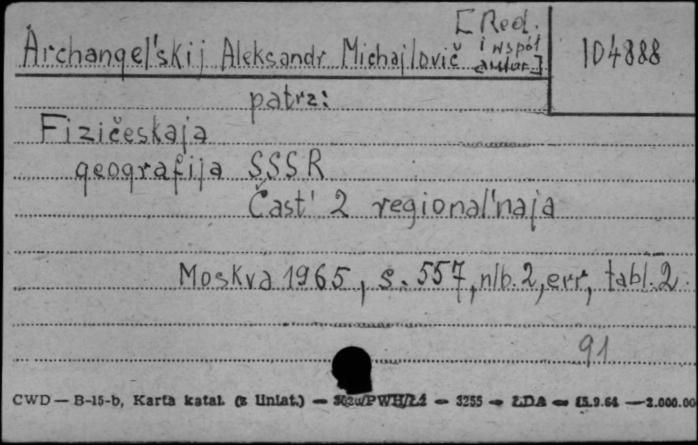 [Red.
i współ
Archangel'skij Aleksandr Michajlovič autor.]
104888
patrz:
Fizičeskaja
geografija SSSR
Čast' 2 regional'naja
Moskva 1965, s. 557, nlb. 2, err, tabl. 2.
91
CWD — B-15-b, Karta katal. (z liniat.) — — 3255 — ŁDA — 15.9.64 — 2.000.00